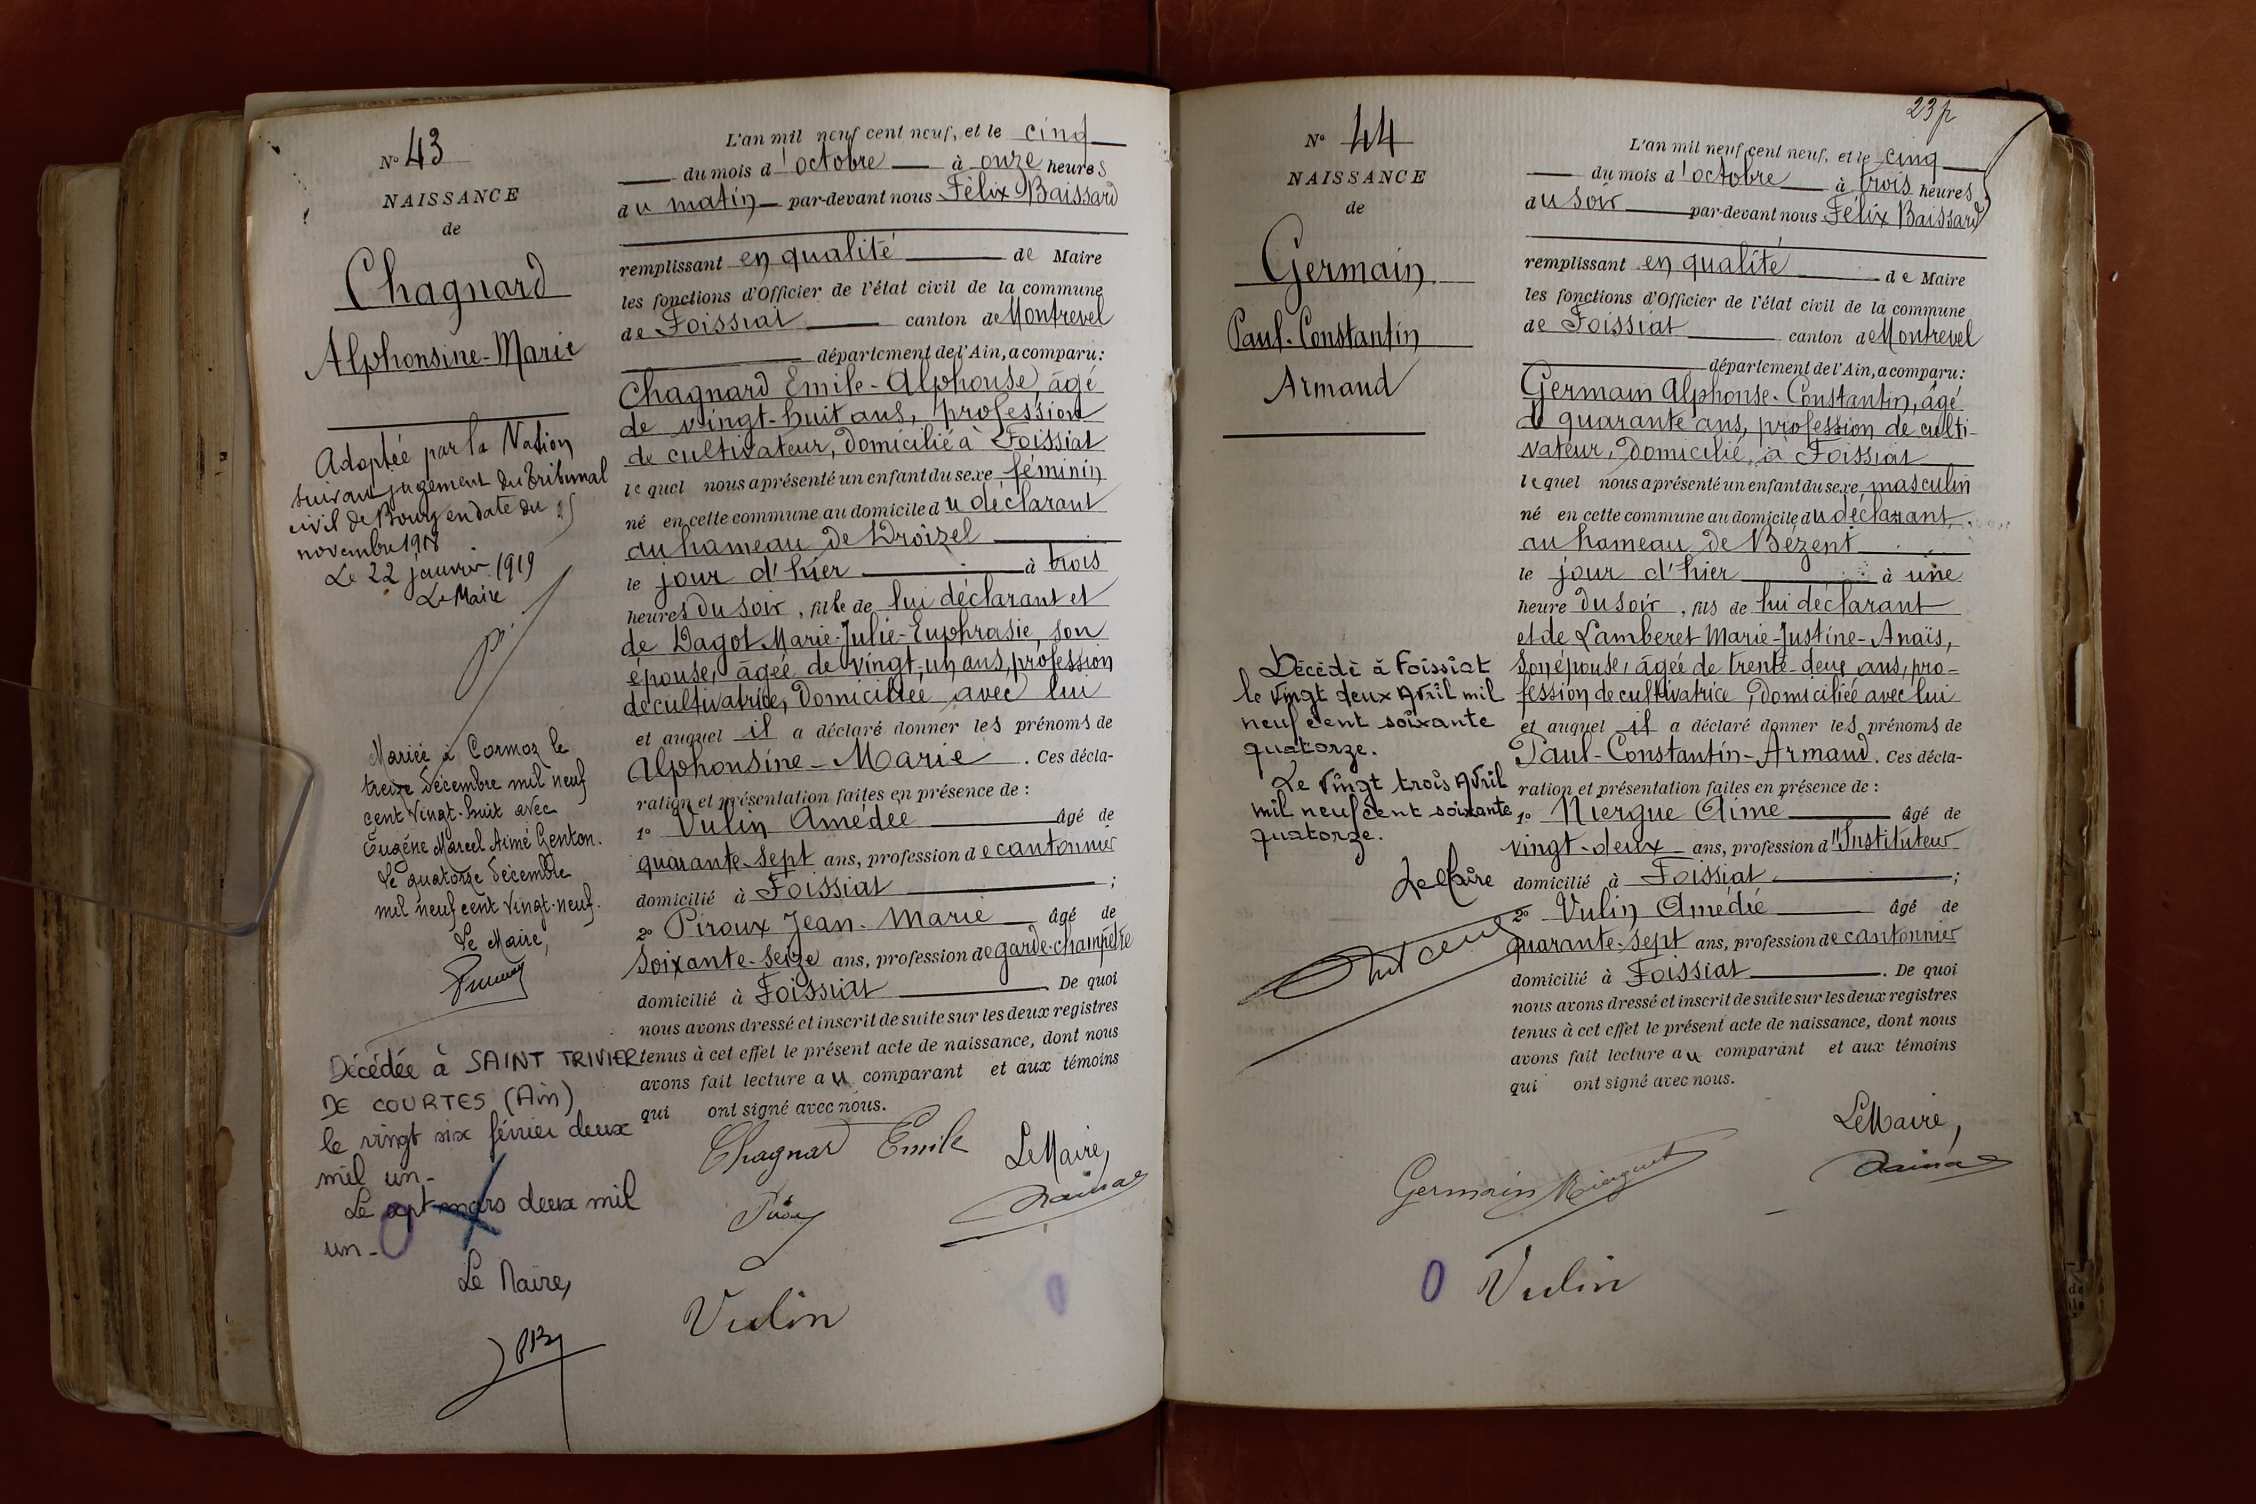 N° 43
NAISSANCE
de
Chagnard
Alphonsine-Marie
Adoptée par la Nation
suivant jugement du Tribunal
civil de Bourg en date du 25
novembre 1918
Le 22 janvier 1919
Le Maire
Mariée à Cormoz le
treize décembre mil neuf
cent vingt-huit avec
Eugène Marcel Aimé Genton.
Le quatorze décembre
mil neuf cent vingt-neuf.
Le Maire,
Décédée à SAINT TRIVIER
DE COURTES (Ain)
le vingt six février deux
mil un-
Le sept mars deux mil
un-
Le Maire,
L'an mil neuf cent neuf, et le cinq
du mois d'octobre à onze heures
du matin par-devant nous Félix Baissard
remplissant en qualité de Maire
les fonctions d'Officier de l'état civil de la commune
de Foissiat canton de Montrevel
département de l'Ain, a comparu:
Chagnard Emile-Alphonse, âgé
de vingt-huit ans, profession
de cultivateur, domicilié à Foissiat
lequel nous a présenté un enfant du sexe féminin
né en cette commune au domicile du déclarant
au hameau de Droizel
le jour d'hier à trois
heures du soir, fille de lui déclarant et
de Dagot Marie-Julie-Euphrasie, son
épouse, âgée de vingt-un ans, profession
de cultivatrice, domiciliée avec lui
et auquel il a déclaré donner les prénoms de
Alphonsine-Marie. Ces décla-
ration et présentation faites en présence de :
1° Vulin Amédée âgé de
quarante-sept ans, profession de cantonnier
domicilié à Foissiat ;
2° Piroux Jean-Marie âgé de
soixante-seize ans, profession de garde-champêtre
domicilié à Foissiat. De quoi
nous avons dressé et inscrit de suite sur les deux registres
tenus à cet effet le présent acte de naissance, dont nous
avons fait lecture au comparant et aux témoins
qui ont signé avec nous.
Chagnard Emile
Le Maire,
Vulin
23
N° 44
NAISSANCE
de
Germain
Paul-Constantin
Armand
Décédé à Foissiat
le vingt deux Avril mil
neuf cent soixante
quatorze.
Le vingt trois Avril
mil neuf cent soixante
quatorze.
Le Maire
L'an mil neuf cent neuf, et le cinq
du mois d'octobre à trois heures
du soir par-devant nous Félix Baissard
remplissant en qualité de Maire
les fonctions d'Officier de l'état civil de la commune
de Foissiat canton de Montrevel
département de l'Ain, a comparu:
Germain Alphonse-Constantin, âgé
de quarante ans, profession de culti-
vateur, domicilié à Foissiat
lequel nous a présenté un enfant du sexe masculin
né en cette commune au domicile du déclarant,
au hameau de Bézent
le jour d'hier à une
heure du soir, fils de lui déclarant
et de Lamberet Marie-Justine-Anaïs,
son épouse, âgée de trente-deux ans, pro-
fession de cultivatrice, domiciliée avec lui
et auquel il a déclaré donner les prénoms de
Paul-Constantin-Armand. Ces décla-
ration et présentation faites en présence de :
1° Niergue Aimé âgé de
vingt-deux ans, profession d'Instituteur
domicilié à Foissiat ;
2° Vulin Amédée âgé de
quarante-sept ans, profession de cantonnier
domicilié à Foissiat. De quoi
nous avons dressé et inscrit de suite sur les deux registres
tenus à cet effet le présent acte de naissance, dont nous
avons fait lecture au comparant et aux témoins
qui ont signé avec nous.
Le Maire,
Germain
Vulin